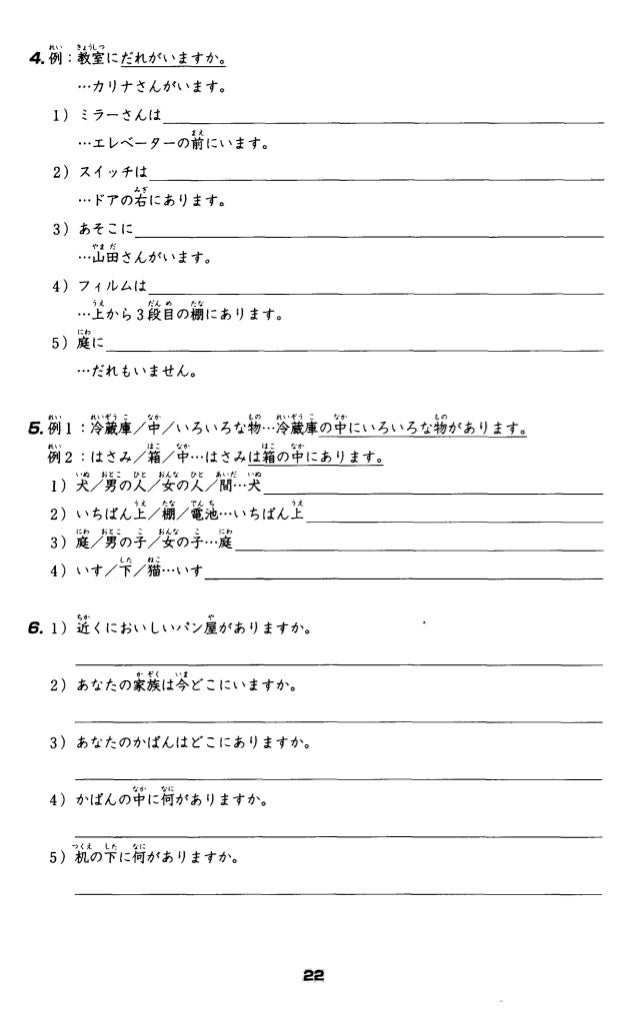 4. 例：教室にだれがいますか。
…カリナさんがいます。
1) ミラーさんは
…エレベーターの前にいます。
2) スイッチは
…ドアの右にあります。
3) あそこに
…山田さんがいます。
4) フィルムは
…上から3段目の棚にあります。
5) 庭に
…だれもいません。
5. 例1：冷蔵庫／中／いろいろな物…冷蔵庫の中にいろいろな物があります。
例2：はさみ／箱／中…はさみは箱の中にあります。
1) 犬／男の人／女の人／間…犬
2) いちばん上／棚／電池…いちばん上
3) 庭／男の子／女の子…庭
4) いす／下／猫…いす
6. 1) 近くにおいしいパン屋がありますか。
2) あなたの家族は今どこにいますか。
3) あなたのかばんはどこにありますか。
4) かばんの中に何がありますか。
5) 机の下に何がありますか。
22